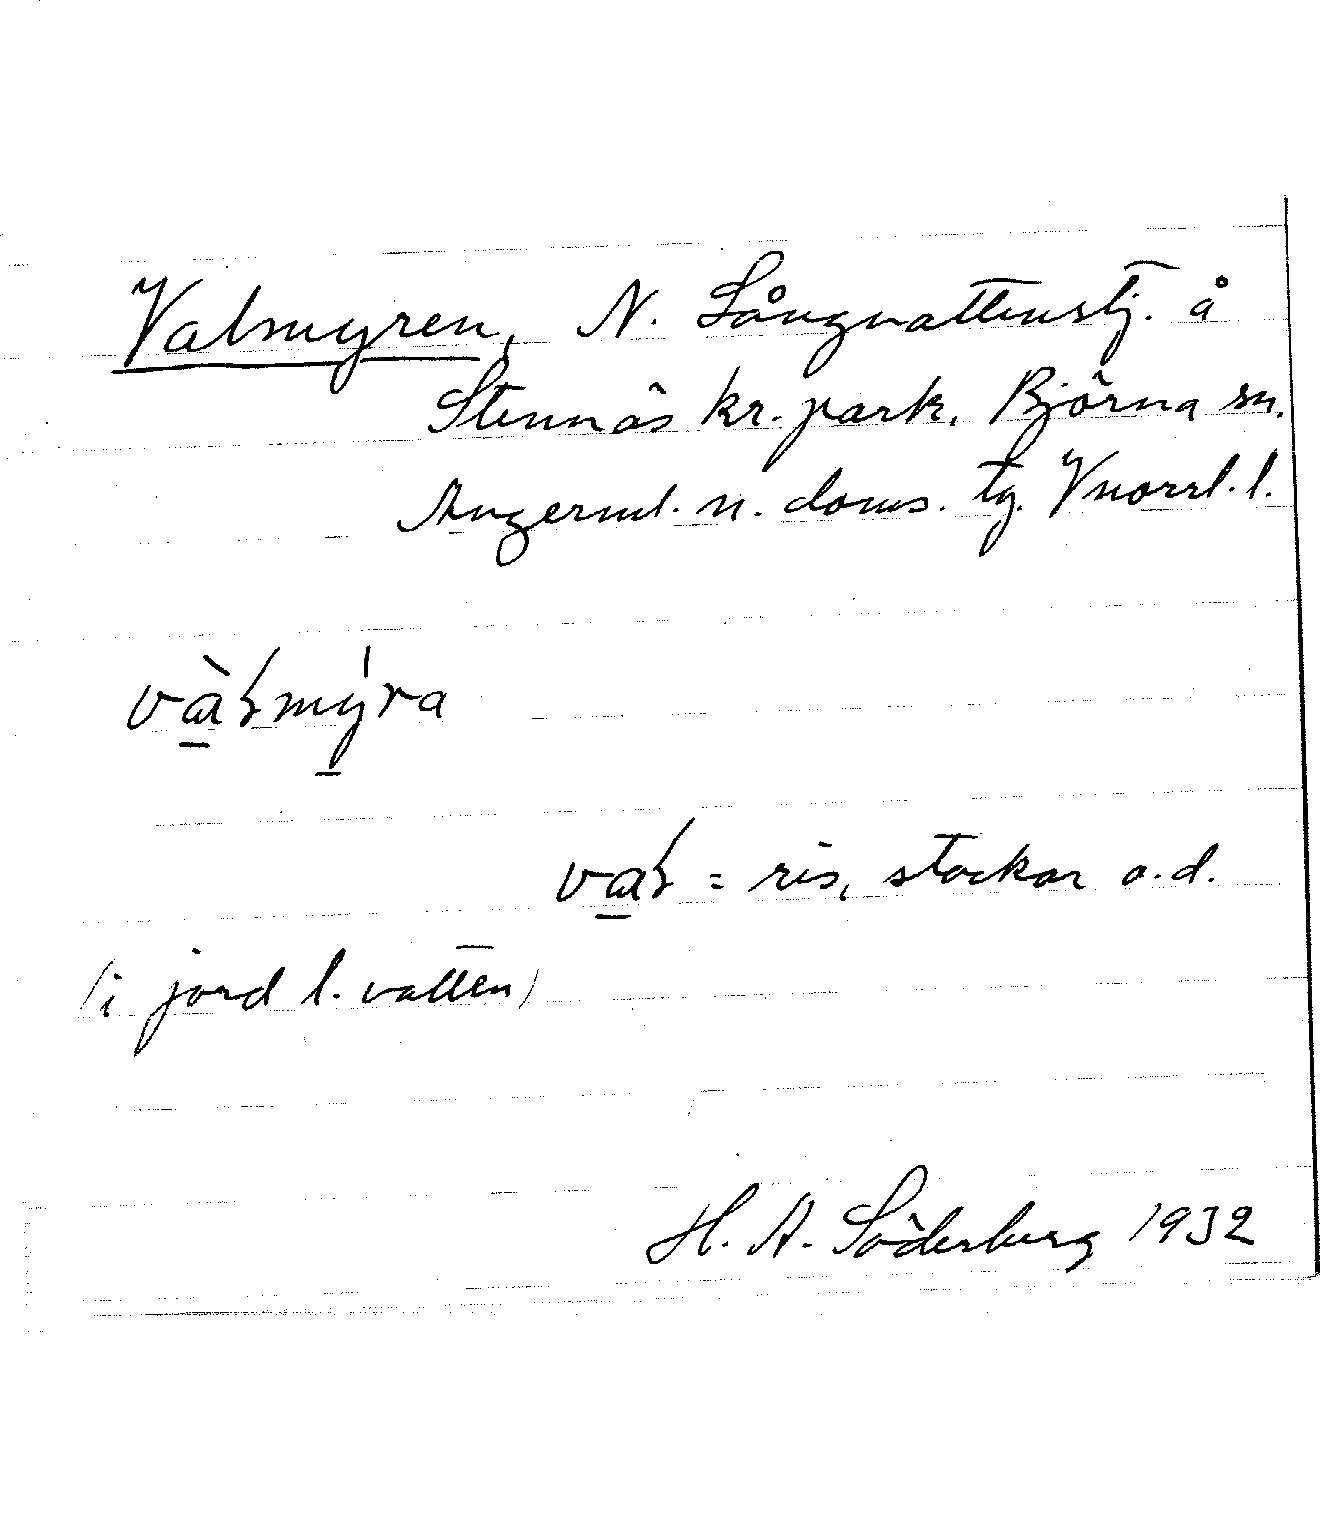 Valmyren, N. Långvattenstj. å
Stennäs kr. park, Björna sn.
Ångerml. n. doms. tg. Vnorrl. l.
vàłmýra
vał = ris, stockar o.d.
(i jord l. vatten)
H. A. Söderberg 1932